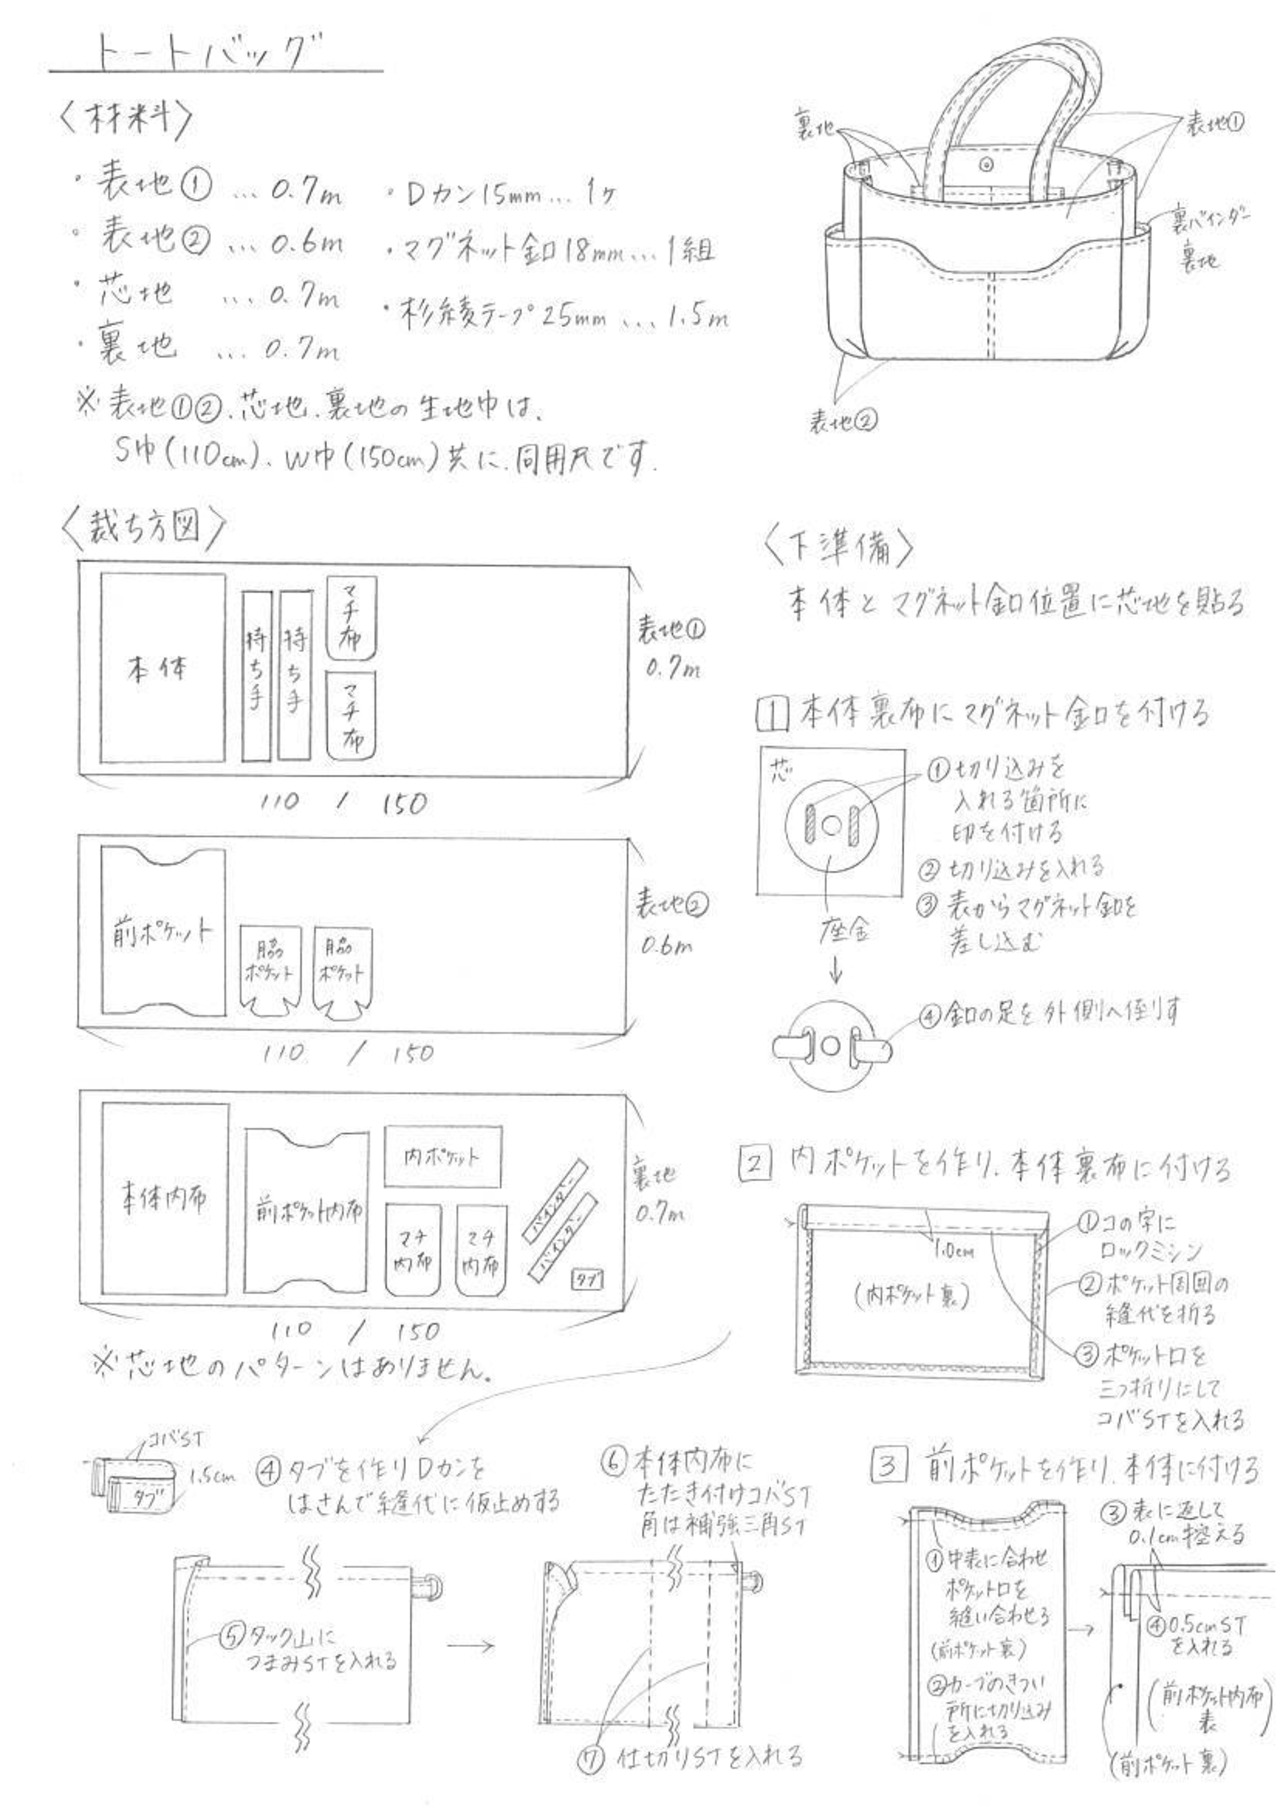 トートバッグ
〈材料〉
・表地① … 0.7m
・表地② … 0.6m
・芯地 … 0.7m
・裏地 … 0.7m
・Dカン15mm… 1ヶ
・マグネット釦18mm… 1組
・杉綾テープ25mm … 1.5m
※表地①②、芯地、裏地の生地巾は、
S巾(110cm)、W巾(150cm)共に、同用尺です。
裏地
表地①
裏バインダー
裏地
表地②
〈裁ち方図〉
本体
持ち手
持ち手
マチ布
マチ布
表地①
0.7m
110 / 150
前ポケット
脇
ポケット
脇
ポケット
表地②
0.6m
110 / 150
本体内布
前ポケット内布
内ポケット
マチ
内布
マチ
内布
バインダー
バインダー
タブ
裏地
0.7m
110 / 150
※芯地のパターンはありません。
〈下準備〉
本体とマグネット釦位置に芯地を貼る
1 本体裏布にマグネット釦を付ける
芯
①切り込みを
入れる箇所に
印を付ける
②切り込みを入れる
③表からマグネット釦を
差し込む
座金
④釦の足を外側へ倒す
2 内ポケットを作り、本体裏布に付ける
1.0cm
(内ポケット裏)
①コの字に
ロックミシン
②ポケット周囲の
縫代を折る
③ポケット口を
三つ折りにして
コバSTを入れる
コバST
1.5cm
タブ
④タブを作りDカンを
はさんで縫代に仮止めする
⑤タック山に
つまみSTを入れる
⑥本体内布に
たたき付けコバST
角は補強三角ST
⑦仕切りSTを入れる
3 前ポケットを作り、本体に付ける
①中表に合わせ
ポケット口を
縫い合わせる
(前ポケット裏)
②カーブのきつい
所に切り込み
を入れる
③表に返して
0.1cm控える
④0.5cmST
を入れる
(前ポケット内布
表)
(前ポケット裏)